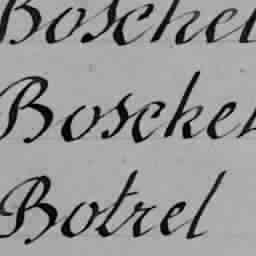 Boschel
Boschel
Botrel